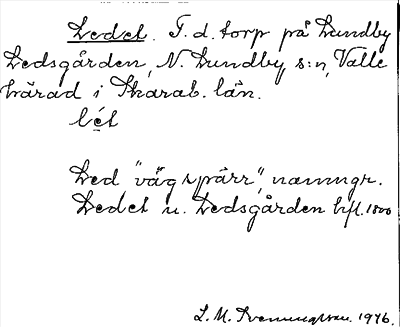 Ledet. F.d. torp på Lundby
Ledsgården, N. Lundby s:n, Valle
härad i Skarab. län.
lét
Led "vägspärr", namngr.
Ledet u. Ledsgården 1800
L. M. Svenungsson. 1946.